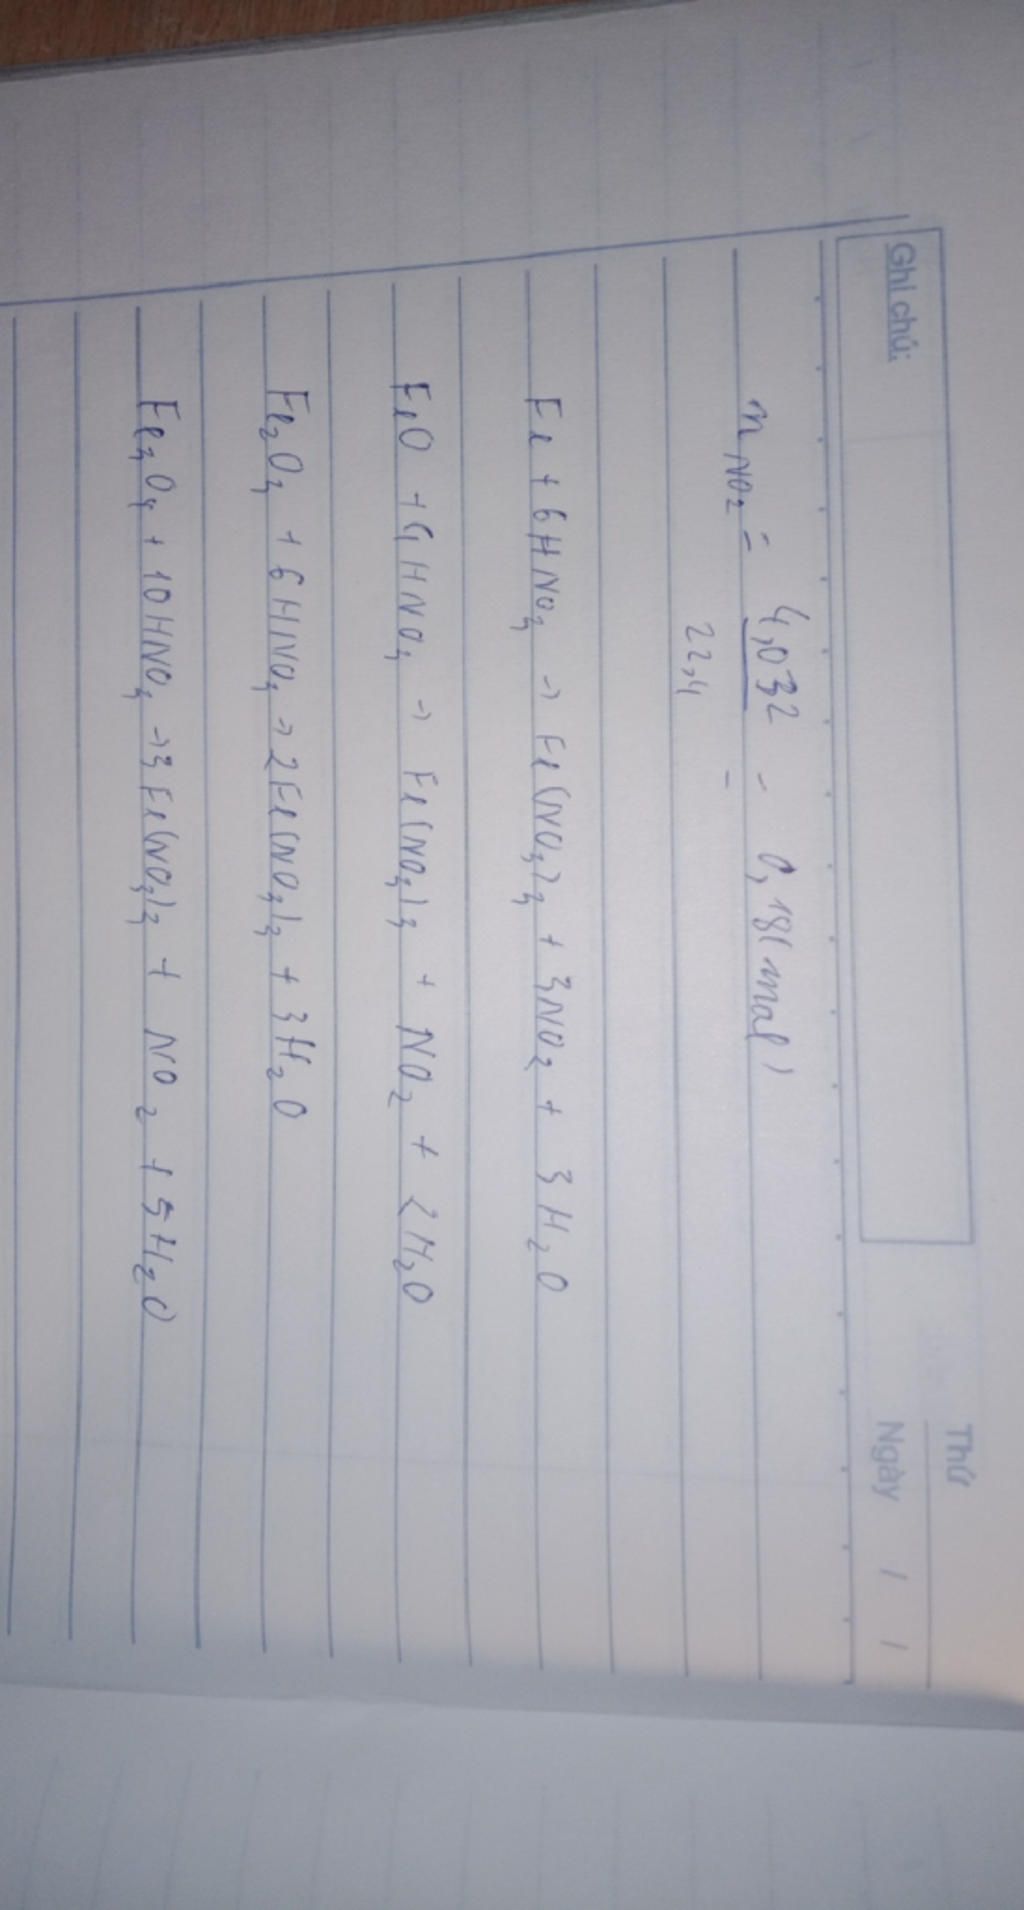 Ghi chú:
Thứ
Ngày / /
n NO₂ = 4,032 = 0,18(mol)
22,4
Fe + 6HNO₃ → Fe(NO₃)₃ + 3NO₂ + 3H₂O
FeO + 4HNO₃ → Fe(NO₃)₃ + NO₂ + 2H₂O
Fe₂O₃ + 6HNO₃ → 2Fe(NO₃)₃ + 3H₂O
Fe₃O₄ + 10HNO₃ → 3Fe(NO₃)₃ + NO₂ + 5H₂O